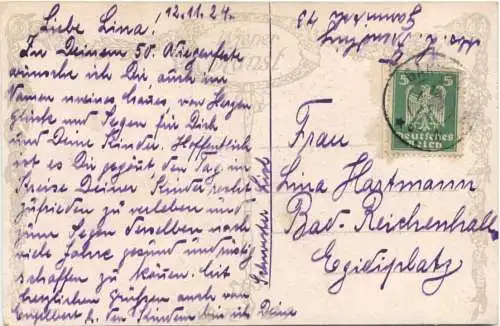 Liebe Lina! 12.11.24.
Zu Deinem 50. Wiegenfeste
wünsche ich Dir auch im
Namen meines Hauses von Herzen
Glück und Segen für Dich
und Deine Kinder. Hoffentlich
ist es Dir gegönnt den Tag im
Kreise Deiner Kinder recht
zufrieden zu verleben und
zum Segen derselben noch
viele Jahre gesund und
schaffen zu können. Mit
herzlichen Grüßen auch von
Engelbert u. den Kindern bin ich Deine
Schwester
Wiener
Kunst
5 5
Deutsches
Reich
Frau
Lina Hartmann
Bad-Reichenhall
Egidiplatz